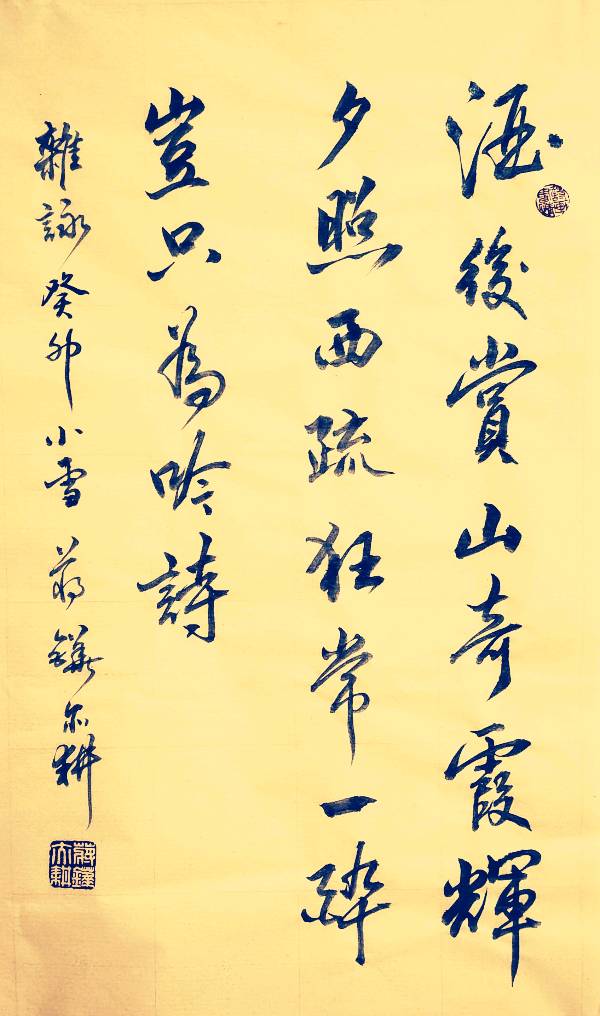 酒後賞山奇霞輝
夕照西疏狂常一醉
豈只為吟詩
雜詠 癸卯小雪 蔣鏵亦耕